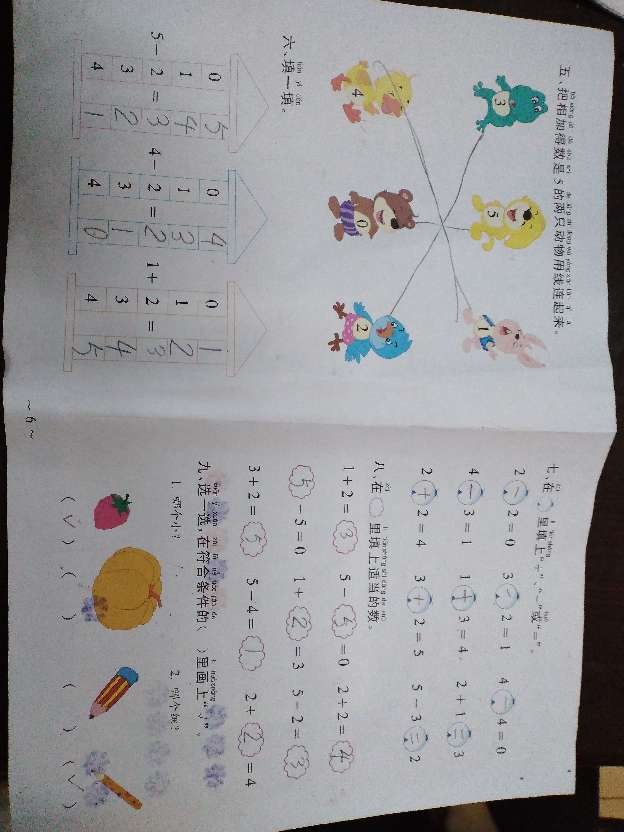 五、把相加得数是5的两只动物用线连起来。
3 5 1
4 0 2
六、填一填。
0 5
1 4
5－ 2 ＝ 3
3 2
4 1
0 4
1 3
4－ 2 ＝ 2
3 1
4 0
0 1
1 2
1＋ 2 ＝ 3
3 4
4 5
～6～
七、在○里填上“＋”、“－”或“＝”。
2－2＝0 3－2＝1 4－4＝0
4－3＝1 1＋3＝4 2＋1＝3
2＋2＝4 3＋2＝5 5－3＝2
八、在 里填上适当的数。
1＋2＝3 5－ ＝0 2＋2＝4
5－5＝0 1＋2＝3 5－2＝3
3＋2＝5 5－4＝1 2＋2＝4
九、选一选，在符合条件的（ ）里画上“√”。
1. 哪个小？ 2. 哪个短？
（√）（ ） （ ）（√）